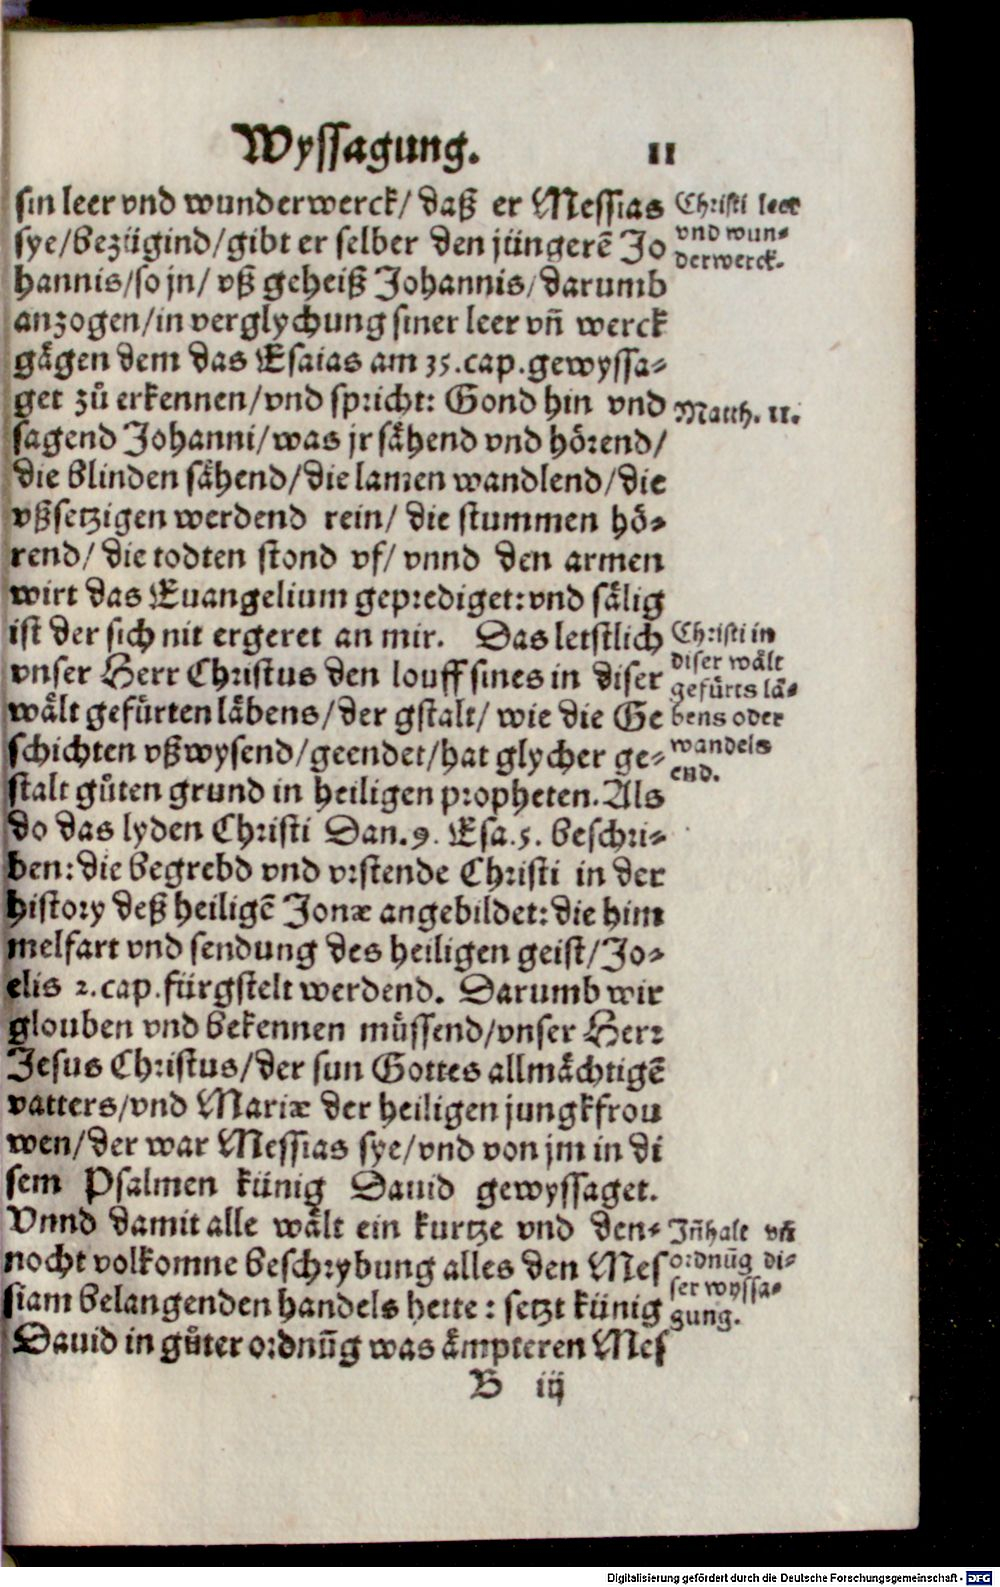 Wyssagung. 11
sin leer vnd wunderwerck/ daß er Messias
sye/bezügind/gibt er selber den jüngerẽ Jo
hannis/so jn/ vß geheiß Johannis/darumb
anzogen/in verglychung siner leer vñ werck
gägen dem das Esaias am 35.cap.gewyssa-
get zů erkennen/vnd spricht: Gond hin vnd
sagend Johanni/was jr sähend vnd hörend/
die blinden sähend/die lamen wandlend/die
vßsetzigen werdend rein/ die stummen hö-
rend/ die todten stond vf/ vnnd den armen
wirt das Euangelium geprediget:vnd sälig
ist der sich nit ergeret an mir. Das letstlich
vnser Herr Christus den louff sines in diser
wält gefürten läbens/der gstalt/ wie die Ge
schichten vßwysend/geendet/hat glycher ge-
stalt gůten grund in heiligen propheten. Als
do das lyden Christi Dan.9. Esa.5. beschri-
ben:die begrebd vnd vrstende Christi in der
history deß heiligẽ Jonæ angebildet:die him
melfart vnd sendung des heiligen geist/Jo-
elis 2.cap.fürgstelt werdend. Darumb wir
glouben vnd bekennen müssend/vnser Herr
Jesus Christus/der sun Gottes allmächtigẽ
vatters/vnd Mariæ der heiligen jungkfrou
wen/der war Messias sye/vnd von jm in di
sem Psalmen künig Dauid gewyssaget.
Vnnd damit alle wält ein kurtze vnd den-
nocht volkomne beschrybung alles den Mes
siam belangenden handels hette: setzt künig
Dauid in gůter ordnũg was ämpteren Mes
B iij
Christi leer
vnd wun-
derwerck.
Matth. 11.
Christi in
diser wält
gefürts lä-
bens oder
wandels
end.
Jñhalt vñ
ordnũg di-
ser wyssa-
gung.
Digitalisierung gefördert durch die Deutsche Forschungsgemeinschaft - DFG